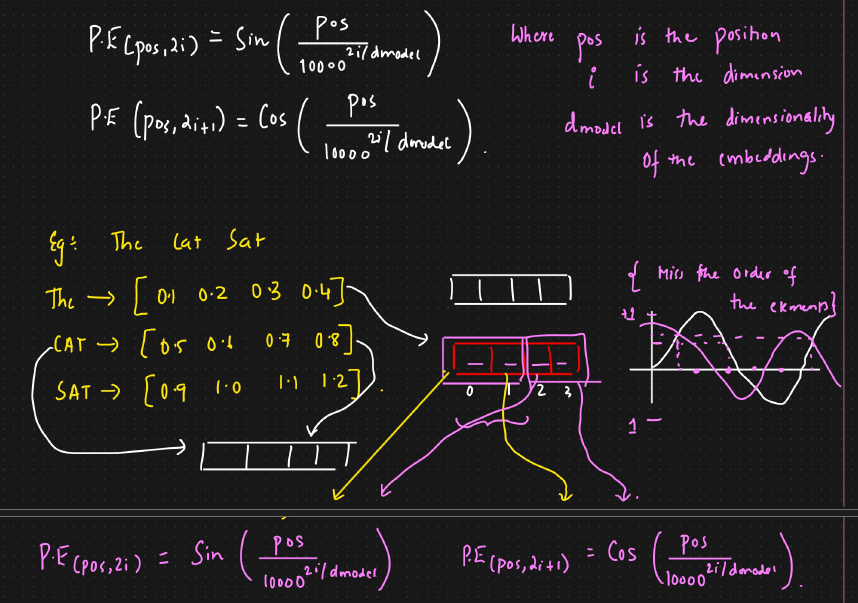 P.E(pos,2i) = Sin ( pos / 10000^2i/dmodel )
Where pos is the position
i is the dimension
P.E (pos,2i+1) = Cos ( pos / 10000^2i/dmodel ).
dmodel is the dimensionality
Of the embeddings.
Eg: The Cat Sat
The → [ 0.1 0.2 0.3 0.4 ]
CAT → [ 0.5 0.6 0.7 0.8 ]
SAT → [ 0.9 1.0 1.1 1.2 ].
0 1 2 3
{ Miss the order of
the elements}
+1
1 –
P.E(pos,2i) = Sin ( pos / 10000^2i/dmodel )
P.E(pos,2i+1) = Cos ( pos / 10000^2i/dmodel ).